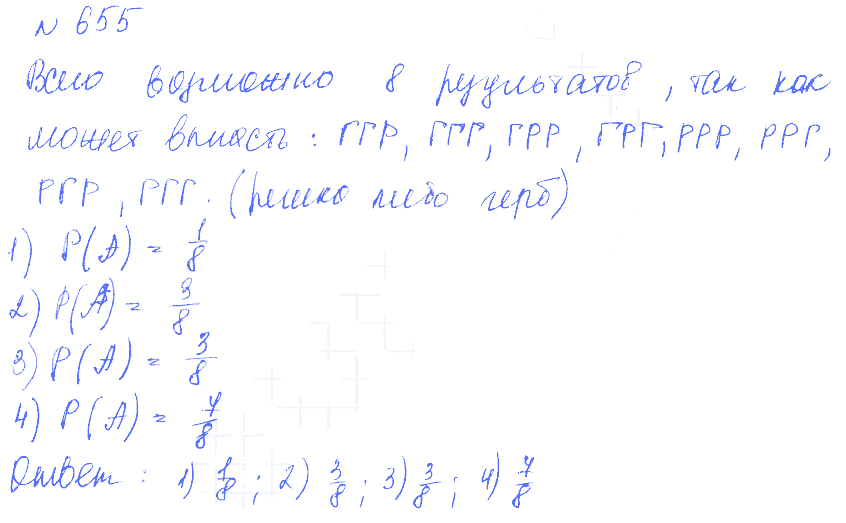 № 655
Всего возможно 8 результатов, так как
может выпасть: ГГР, ГГГ, ГРР, ГРГ, РРР, РРГ,
РГР, РГГ. (решка либо герб)
1) P(A) = 1/8
2) P(A) = 3/8
3) P(A) = 3/8
4) P(A) = 7/8
Ответ: 1) 1/8; 2) 3/8; 3) 3/8; 4) 7/8